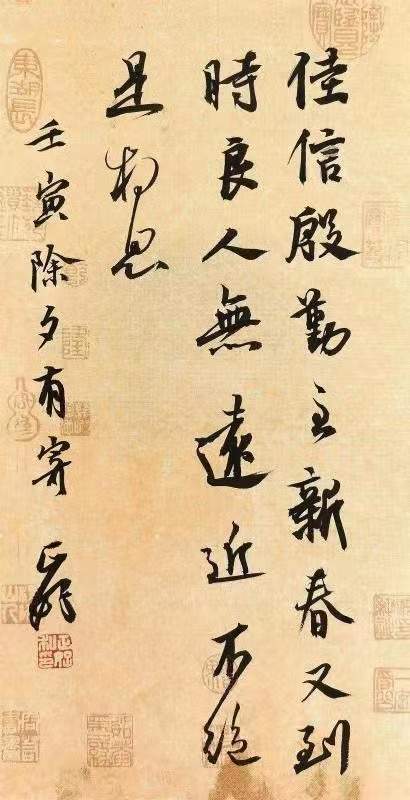 佳信殷勤至新春又到
時良人無遠近不絕
是相思
壬寅除夕有寄
東湖長